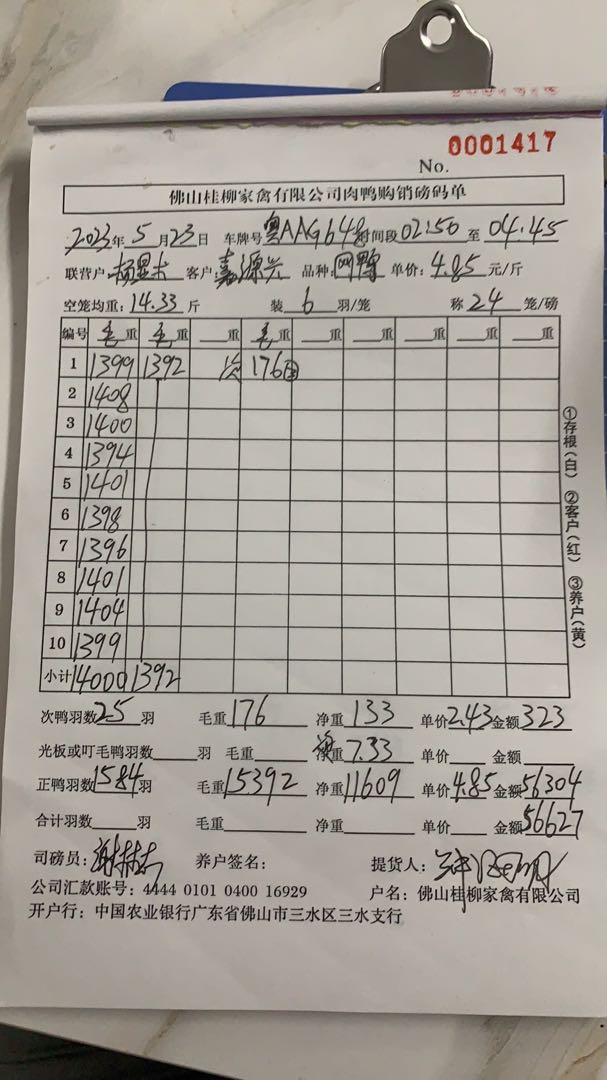 No. 0001417
佛山桂柳家禽有限公司肉鸭购销磅码单
2023年5月23日 车牌号粤AAG648时间段02:50至04:45
联营户: 客户:嘉源兴 品种: 单价:4.85元/斤
空笼均重:14.33斤 装6羽/笼 称24笼/磅
编号 毛重 毛重 重 毛重 重 重 重 重
1 1399 1392 次 176
2 1408
3 1400
4 1394
5 1401
6 1398
7 1396
8 1401
9 1404
10 1399
小计 14000 1392
①存根(白) ②客户(红) ③养户(黄)
次鸭羽数25羽 毛重176 净重133 单价2.43 金额323
光板或叮毛鸭羽数 羽 毛重 净重7.33 单价 金额
正鸭羽数1584羽 毛重15392 净重11609 单价4.85 金额56304
合计羽数 羽 毛重 净重 单价 金额56627
司磅员: 养户签名: 提货人:
公司汇款账号:4444 0101 0400 16929 户名:佛山桂柳家禽有限公司
开户行:中国农业银行广东省佛山市三水区三水支行